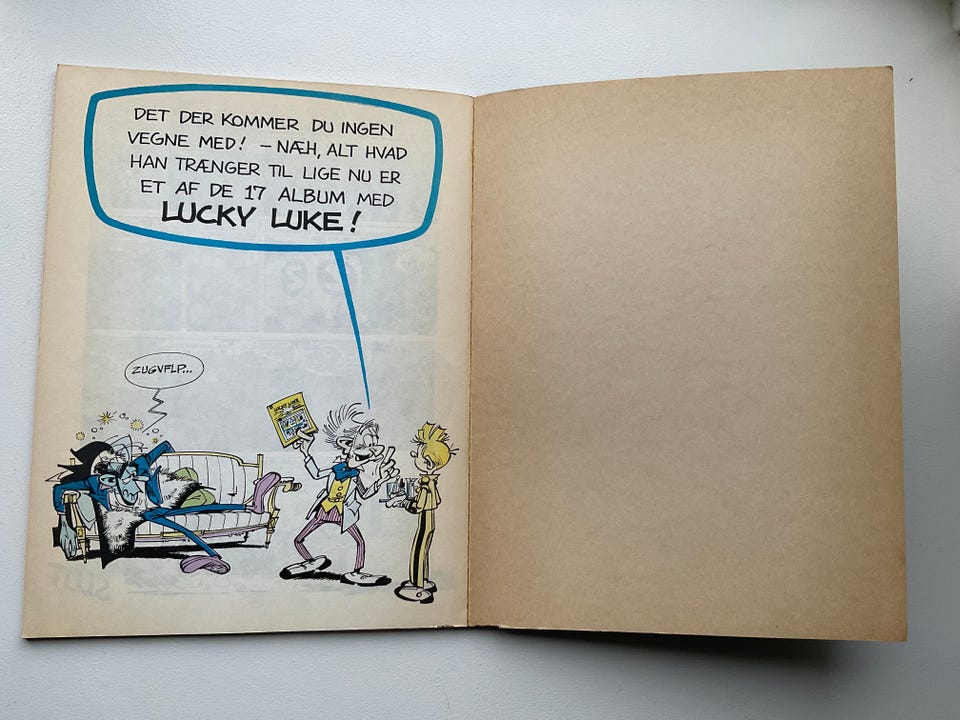 DET DER KOMMER DU INGEN
VEGNE MED! – NÆH, ALT HVAD
HAN TRÆNGER TIL LIGE NU ER
ET AF DE 17 ALBUM MED
LUCKY LUKE!
ZUGVFLP...
LUCKY LUKE